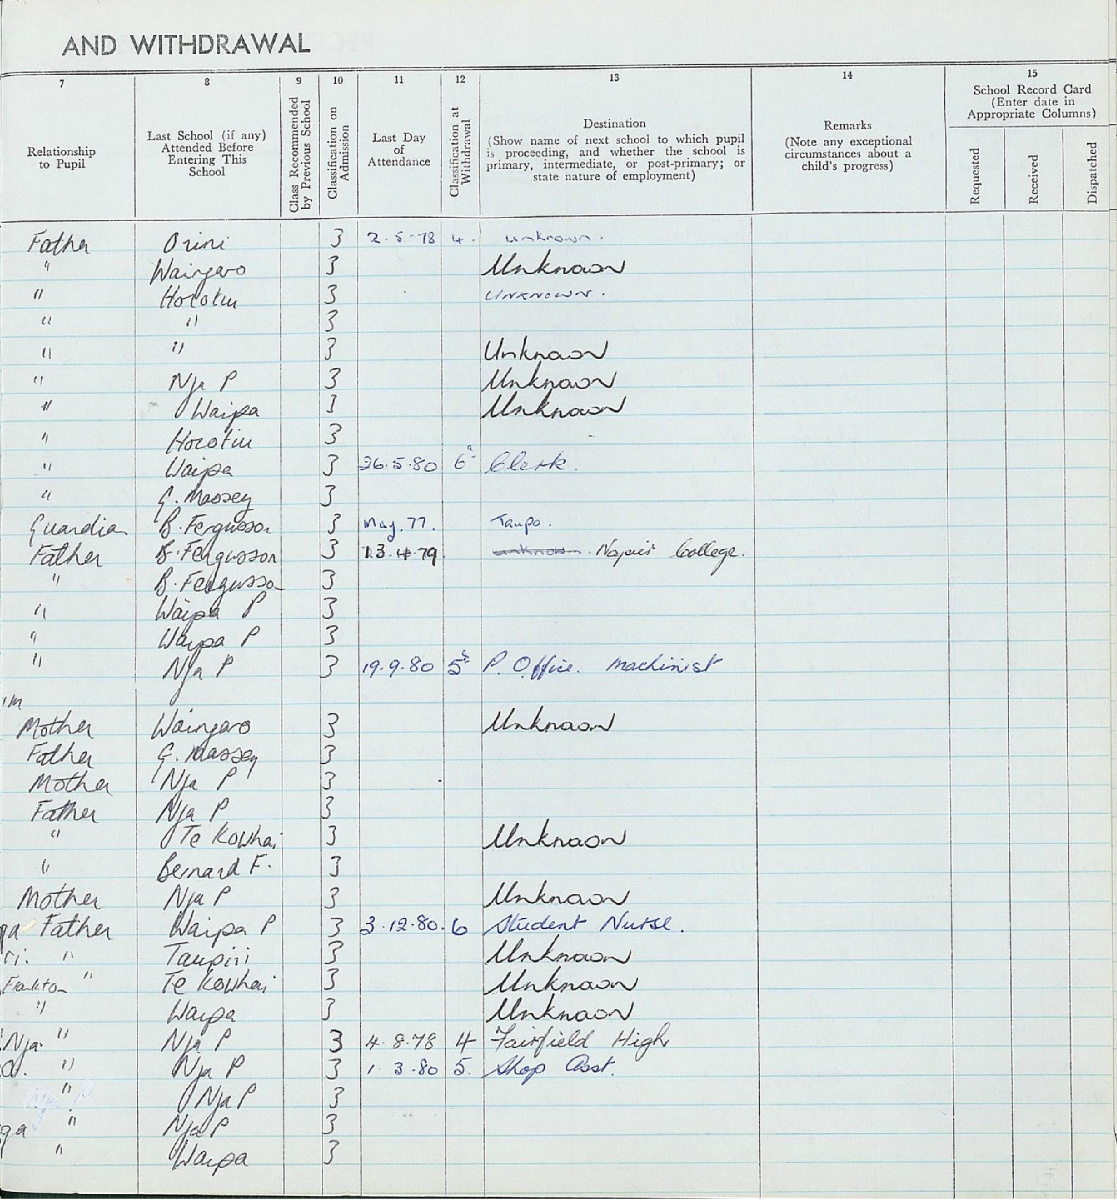 AND WITHDRAWAL
7 8 9 10 11 12 13 14 15
Relationship to Pupil
Last School (if any) Attended Before Entering This School
Class Recommended by Previous School
Classification on Admission
Last Day of Attendance
Classification at Withdrawal
Destination
(Show name of next school to which pupil is proceeding, and whether the school is primary, intermediate, or post-primary; or state nature of employment)
Remarks
(Note any exceptional circumstances about a child's progress)
School Record Card
(Enter date in Appropriate Columns)
Requested
Received
Dispatched
Father Orini 3 2.5.78 4. unknown.
" Waingaro 3 Unknown
" Horotiu 3 UNKNOWN.
" " 3
" " 3 Unknown
" Nga P 3 Unknown
" Waipa 3 Unknown
" Horotiu 3
" Waipa 3 26.5.80 6 Clerk.
" G. Massey 3
Guardian B. Fergusson 3 May. 77. Taupo.
Father B. Fergusson 3 13.4.79 unknown. Napier College.
" B. Fergusso 3
" Waipa P 3
" Waipa P 3
" Nga P 3 19.9.80 5 P. Office. Machinist
Mother Waingaro 3 Unknown
Father G. Massey 3
Mother Nga P 3
Father Nga P 3
" Te Kowhai 3 Unknown
" Bernard F. 3
Mother Nga P 3 Unknown
ga Father Waipa P 3 3.12.80. 6 Student Nurse.
ri. " Taupiri 3 Unknown
" Te Kowhai 3 Unknown
" Waipa 3 Unknown
Nga. " Nga P 3 4.8.78 4 Fairfield High
" Nga P 3 1.3.80 5. Shop Asst.
" Nga P 3
ga " Nga P 3
" Waipa 3